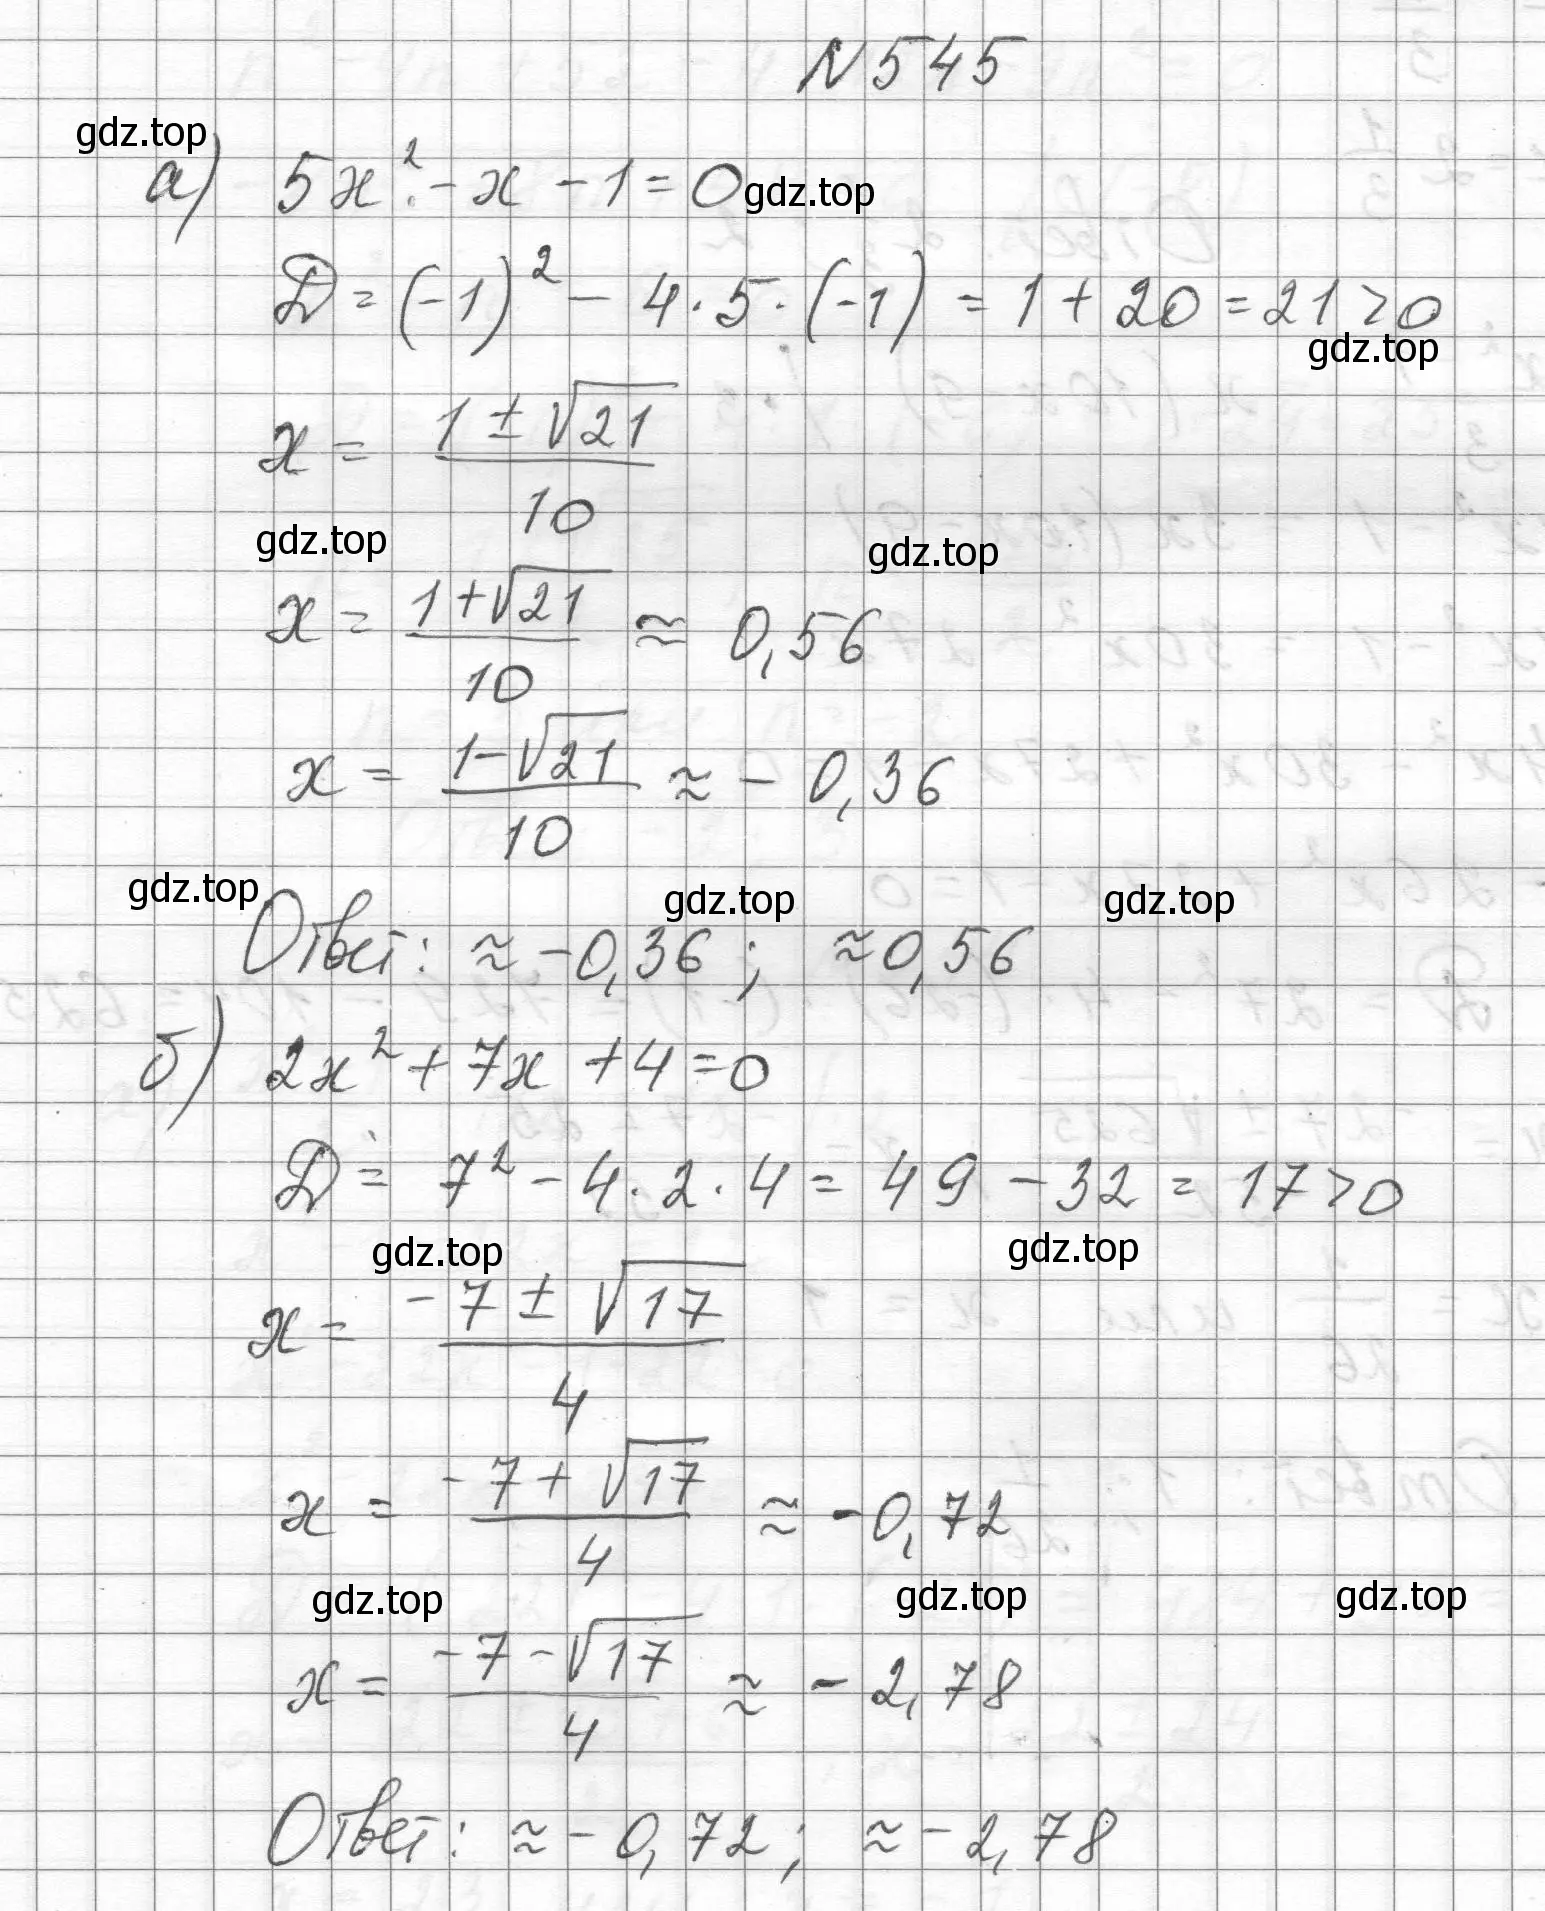 N 545
gdz.top
а) 5x² - x - 1 = 0 gdz.top
D = (-1)² - 4 · 5 · (-1) = 1 + 20 = 21 > 0
gdz.top
x = (1 ± √21) / 10
gdz.top gdz.top
x = (1 + √21) / 10 ≈ 0,56
x = (1 - √21) / 10 ≈ - 0,36
gdz.top gdz.top gdz.top
Ответ: ≈ -0,36; ≈ 0,56
б) 2x² + 7x + 4 = 0
D = 7² - 4 · 2 · 4 = 49 - 32 = 17 > 0
gdz.top gdz.top
x = (-7 ± √17) / 4
x = (-7 + √17) / 4 ≈ -0,72
gdz.top gdz.top gdz.top
x = (-7 - √17) / 4 ≈ - 2,78
Ответ: ≈ - 0,72; ≈ - 2,78